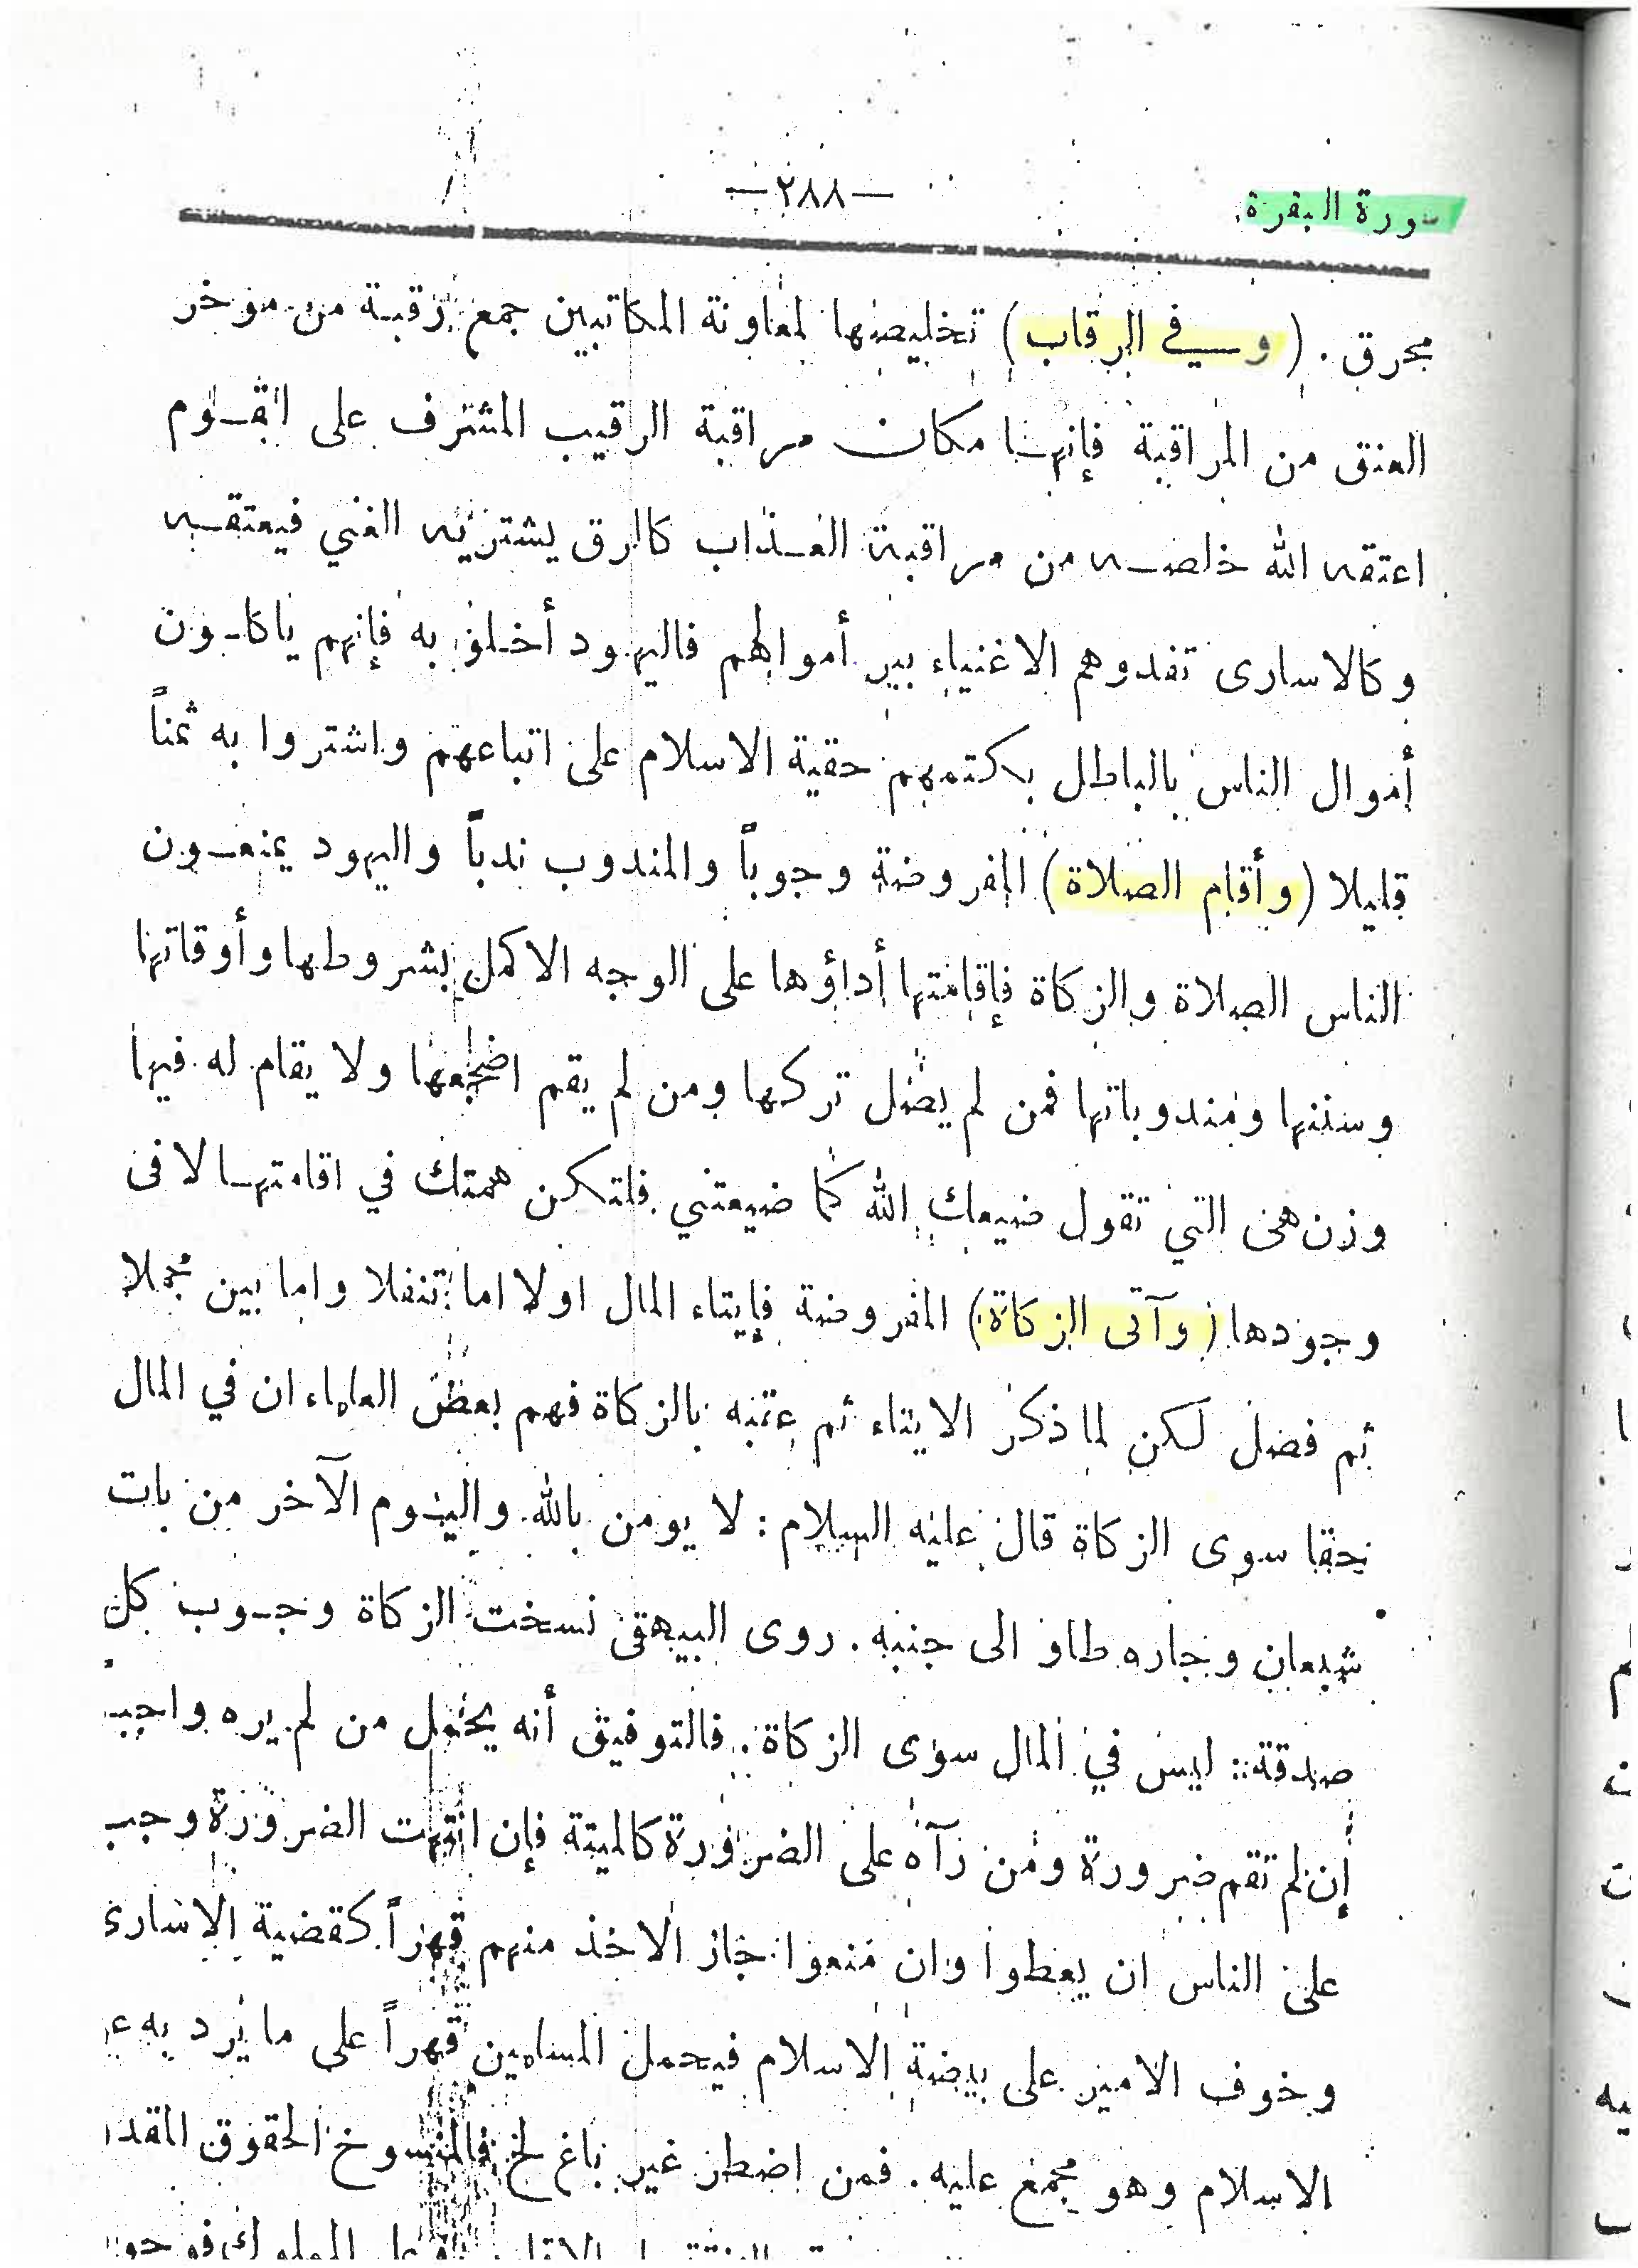 سورة البقرة
—٢٨٨—
محرق . (وفي الرقاب) تخليصها لمعاونة المكاتبين جمع رقبة من مؤخر
العنق من المراقبة فإنها مكان مراقبة الرقيب المشرف على القوم
اعتقه الله خلصه من مراقبة العذاب كالرق يشتريه الغني فيعتقه
وكالاسارى تفدوهم الاغنياء ببر أموالهم فاليهود أخلوا به فإنهم ياكلون
أموال الناس بالباطل بكتمهم حقية الاسلام على اتباعهم واشتروا به ثمناً
قليلا (وأقام الصلاة) المفروضة وجوباً والمندوب ندباً واليهود يمنعون
الناس الصلاة والزكاة فإقامتها أداؤها على الوجه الاكمل بشروطها وأوقاتها
وسننها ومندوباتها فمن لم يصل تركها ومن لم يقم اضجعها ولا يقام له فيها
وزن هى التي تقول ضيعك الله كما ضيعتني فلتكن همتك في اقامتها لا فى
وجودها (وآتى الزكاة) المفروضة فإيتاء المال اولا اما تنفلا واما بين مجملا
ثم فصل لكن لما ذكر الايتاء ثم عقبه بالزكاة فهم بعض العلماء ان في المال
حقا سوى الزكاة قال عليه السلام : لا يومن بالله واليوم الآخر من بات
شبعان وجاره طاو الى جنبه . روى البيهقى نسخت الزكاة وجوب كل
صدقة : ليس في المال سوى الزكاة . فالتوفيق أنه يحمل من لم يره واجب
إن لم تقم ضرورة ومن رآه على الضرورة كالميتة فإن انتهت الضرورة وجب
على الناس ان يعطوا وان منعوا جاز الاخذ منهم قهراً كقضية الاسارى
وخوف الامير على بيضة الاسلام فيحمل المسلمين قهراً على ما يرد به
الاسلام وهو مجمع عليه . فمن اضطر غير باغ لخ فالمنسوخ الحقوق